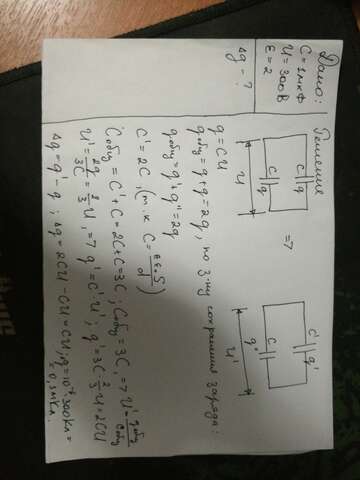 Дано:
C = 1мкФ
U = 300В
ε = 2
Δq - ?
Решение
C
q
C
q
U
=>
C'
q'
C
q"
U'
q = CU
qобщ = q + q = 2q, по з-ну сохранения заряда:
qобщ = q' + q" = 2q
C' = 2C, (т.к C = εε₀S/d)
Cобщ = C' + C = 2C + C = 3C; Cобщ = 3C, => U' = qобщ/Cобщ
U' = 2q/3C = 2/3 U, => q' = C'·U'; q' = 3C 2/3 U = 2CU
Δq = q' - q; Δq = 2CU - CU = CU; q = 10⁻⁶·300Кл =
= 0,3мКл.